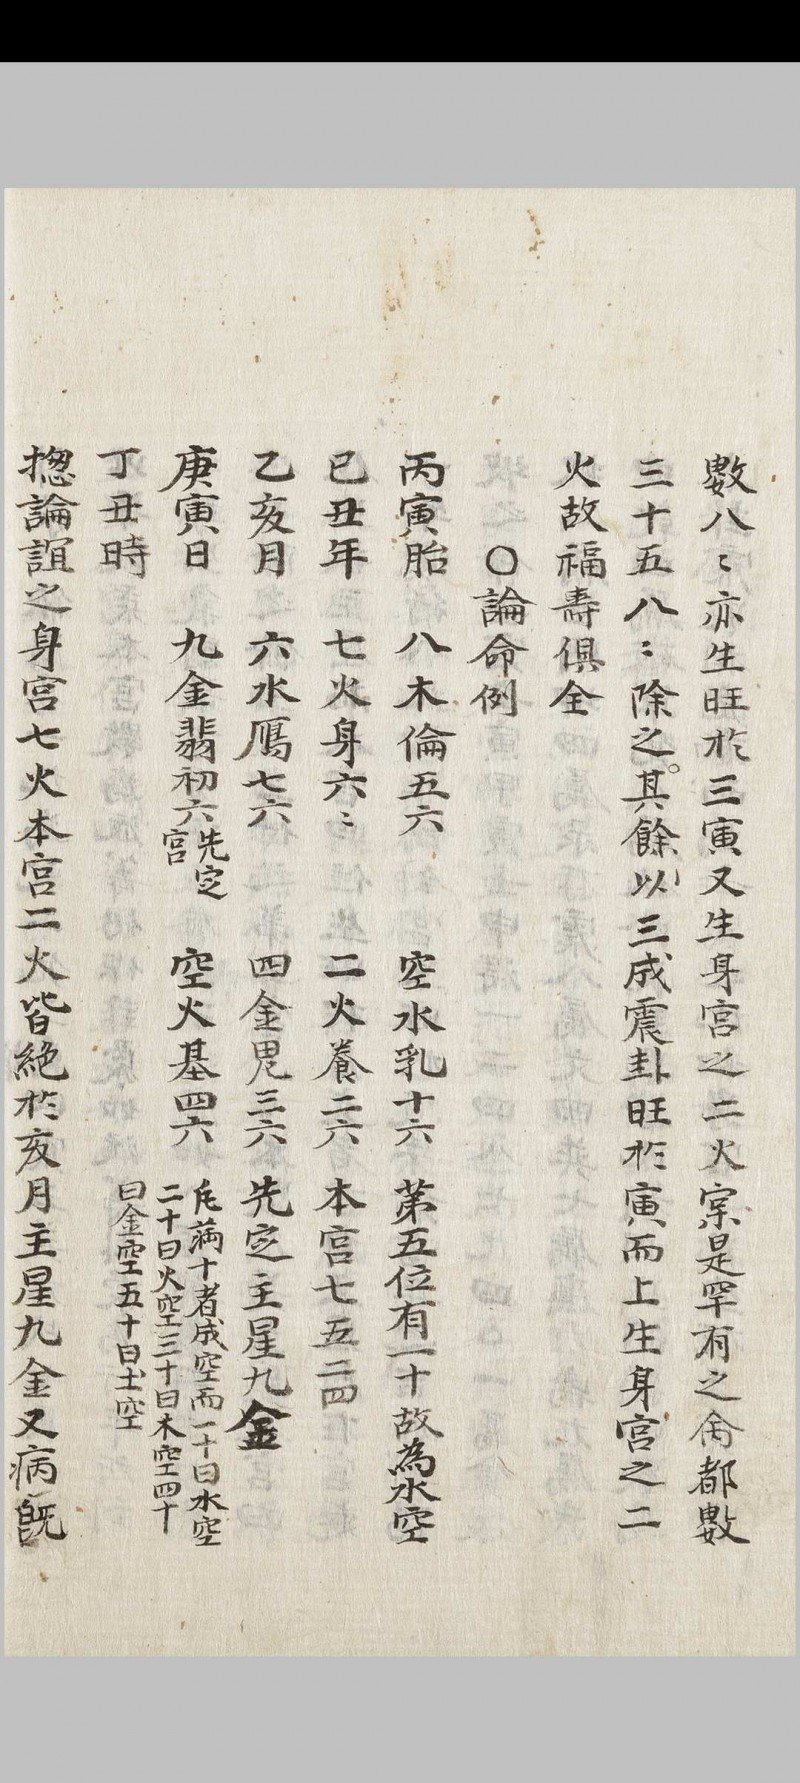 數八〻亦生旺於三寅又生身宮之二火宲是罕有之命都數
三十五八〻除之其餘以三成震卦旺於寅而上生身宮之二
火故福壽俱全
〇論命例
丙寅胎 八木倫五六 空水乳十六 第五位有一十故為水空
己丑年 七火身六〻 二火養二六 本宮七五二四
乙亥月 六水鴈七六 四金鬼三六 先定主星九金
庚寅日 九金翡初六 先定宮 空火基四六 凡滿十者成空而一十曰水空
二十曰火空三十曰木空四十
曰金空五十曰土空
丁丑時
揔論誼之身宮七火本宮二火皆絕於亥月主星九金又病既